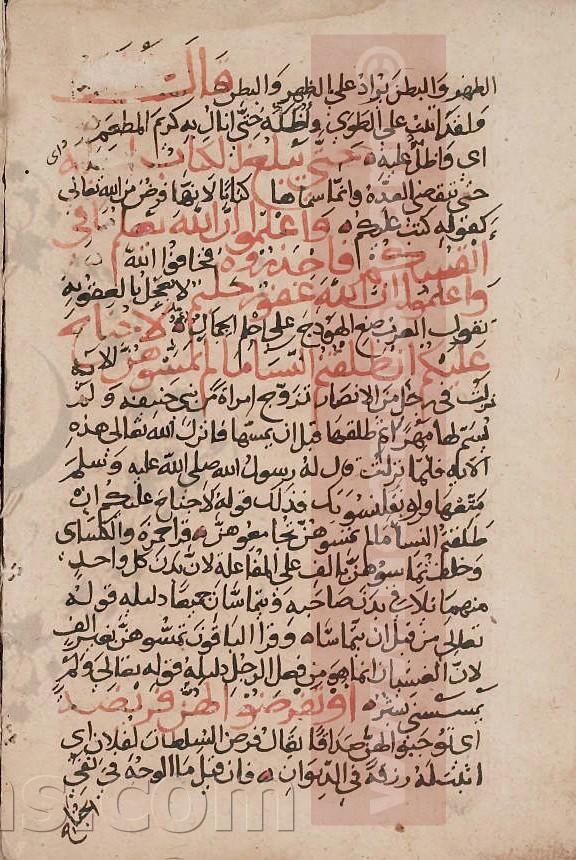 الظهر والبطن يراد على الظهر والبطن قال
ولقد ابيت على الطوى واظله حتى انال به كريم المطعم
اي واظل عليه حتى يبلغ الكتاب اجله
حتى تنقضي العدة وانما سماها كتابا لانها فرض من الله تعالى
كقوله كتب عليكم واعلموا ان الله يعلم ما في
انفسكم فاحذروه فخافوا الله
واعلموا ان الله غفور حليم لا يعجل بالعقوبة
تقول العرب ضع الهودج على احلم الجمال لا جناح
عليكم ان طلقتم النسا ما لم تمسوهن الاية
نزلت في رجل من الانصار تزوج امراة من بني حنيفة ولم
يسم لها مهرا ثم طلقها قبل ان يمسها فانزل الله تعالى هذه
الاية فلما نزلت قال له رسول الله صلى الله عليه وسلم
متعها ولو بقلنسوتك فذلك قوله لا جناح عليكم ان
طلقتم النسا ما لم تمسوهن تجامعوهن قرا حمزة والكساي
وخلف تماسوهن بالف على المفاعلة لان بدن كل واحد
منهما يلاقي بدن صاحبه ويتماسان جميعا دليله قوله
تعالى من قبل ان يتماسا وقرا الباقون تمسوهن بغير الف
لان الغشيان انما هو من فعل الرجل دليله قوله تعالى ولم
يمسسني بشر او تفرضوا لهن فريضة
اي توجبوا لهن صداقا يقال فرض السلطان لفلان اي
اثبت له رزقه في الديوان فان قيل ما الوجه في نفي
الجناح